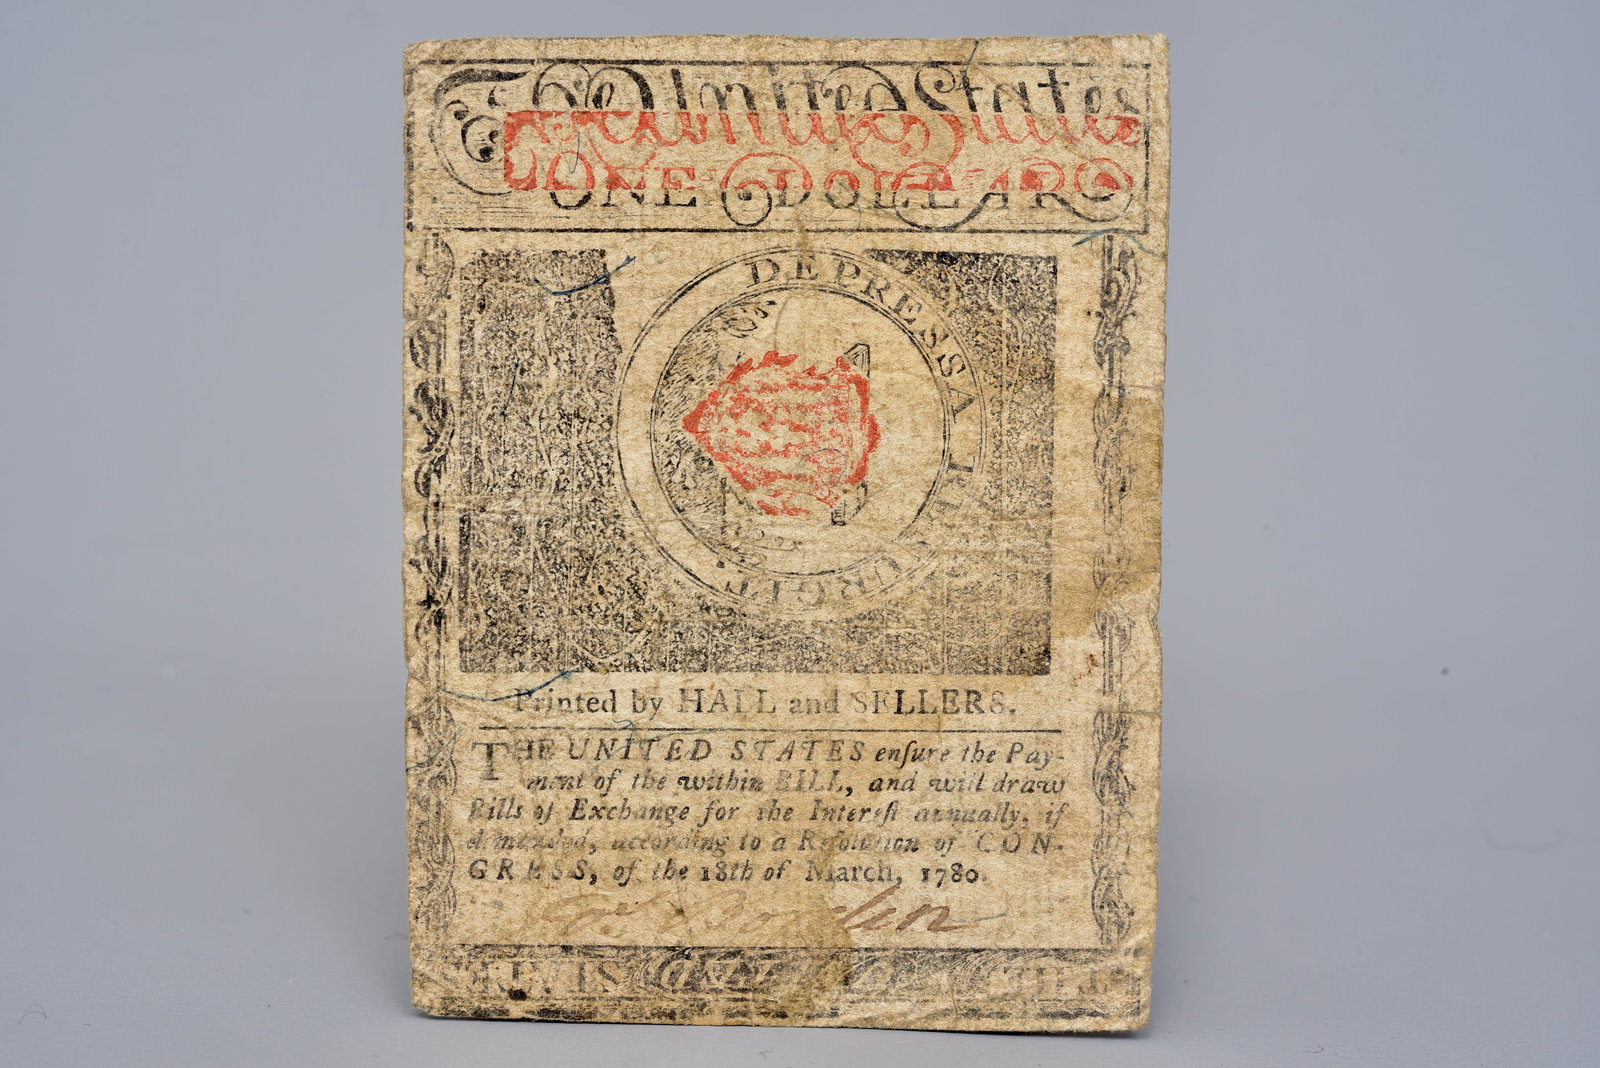 The United States
The United States
ONE DOLLAR
DEPRESSA RESURGIT.
Printed by HALL and SELLERS.
THE UNITED STATES enſure the Pay-
ment of the within BILL, and will draw
Bills of Exchange for the Intereſt annually, if
demanded, according to a Reſolution of CON-
GRESS, of the 18th of March, 1780.